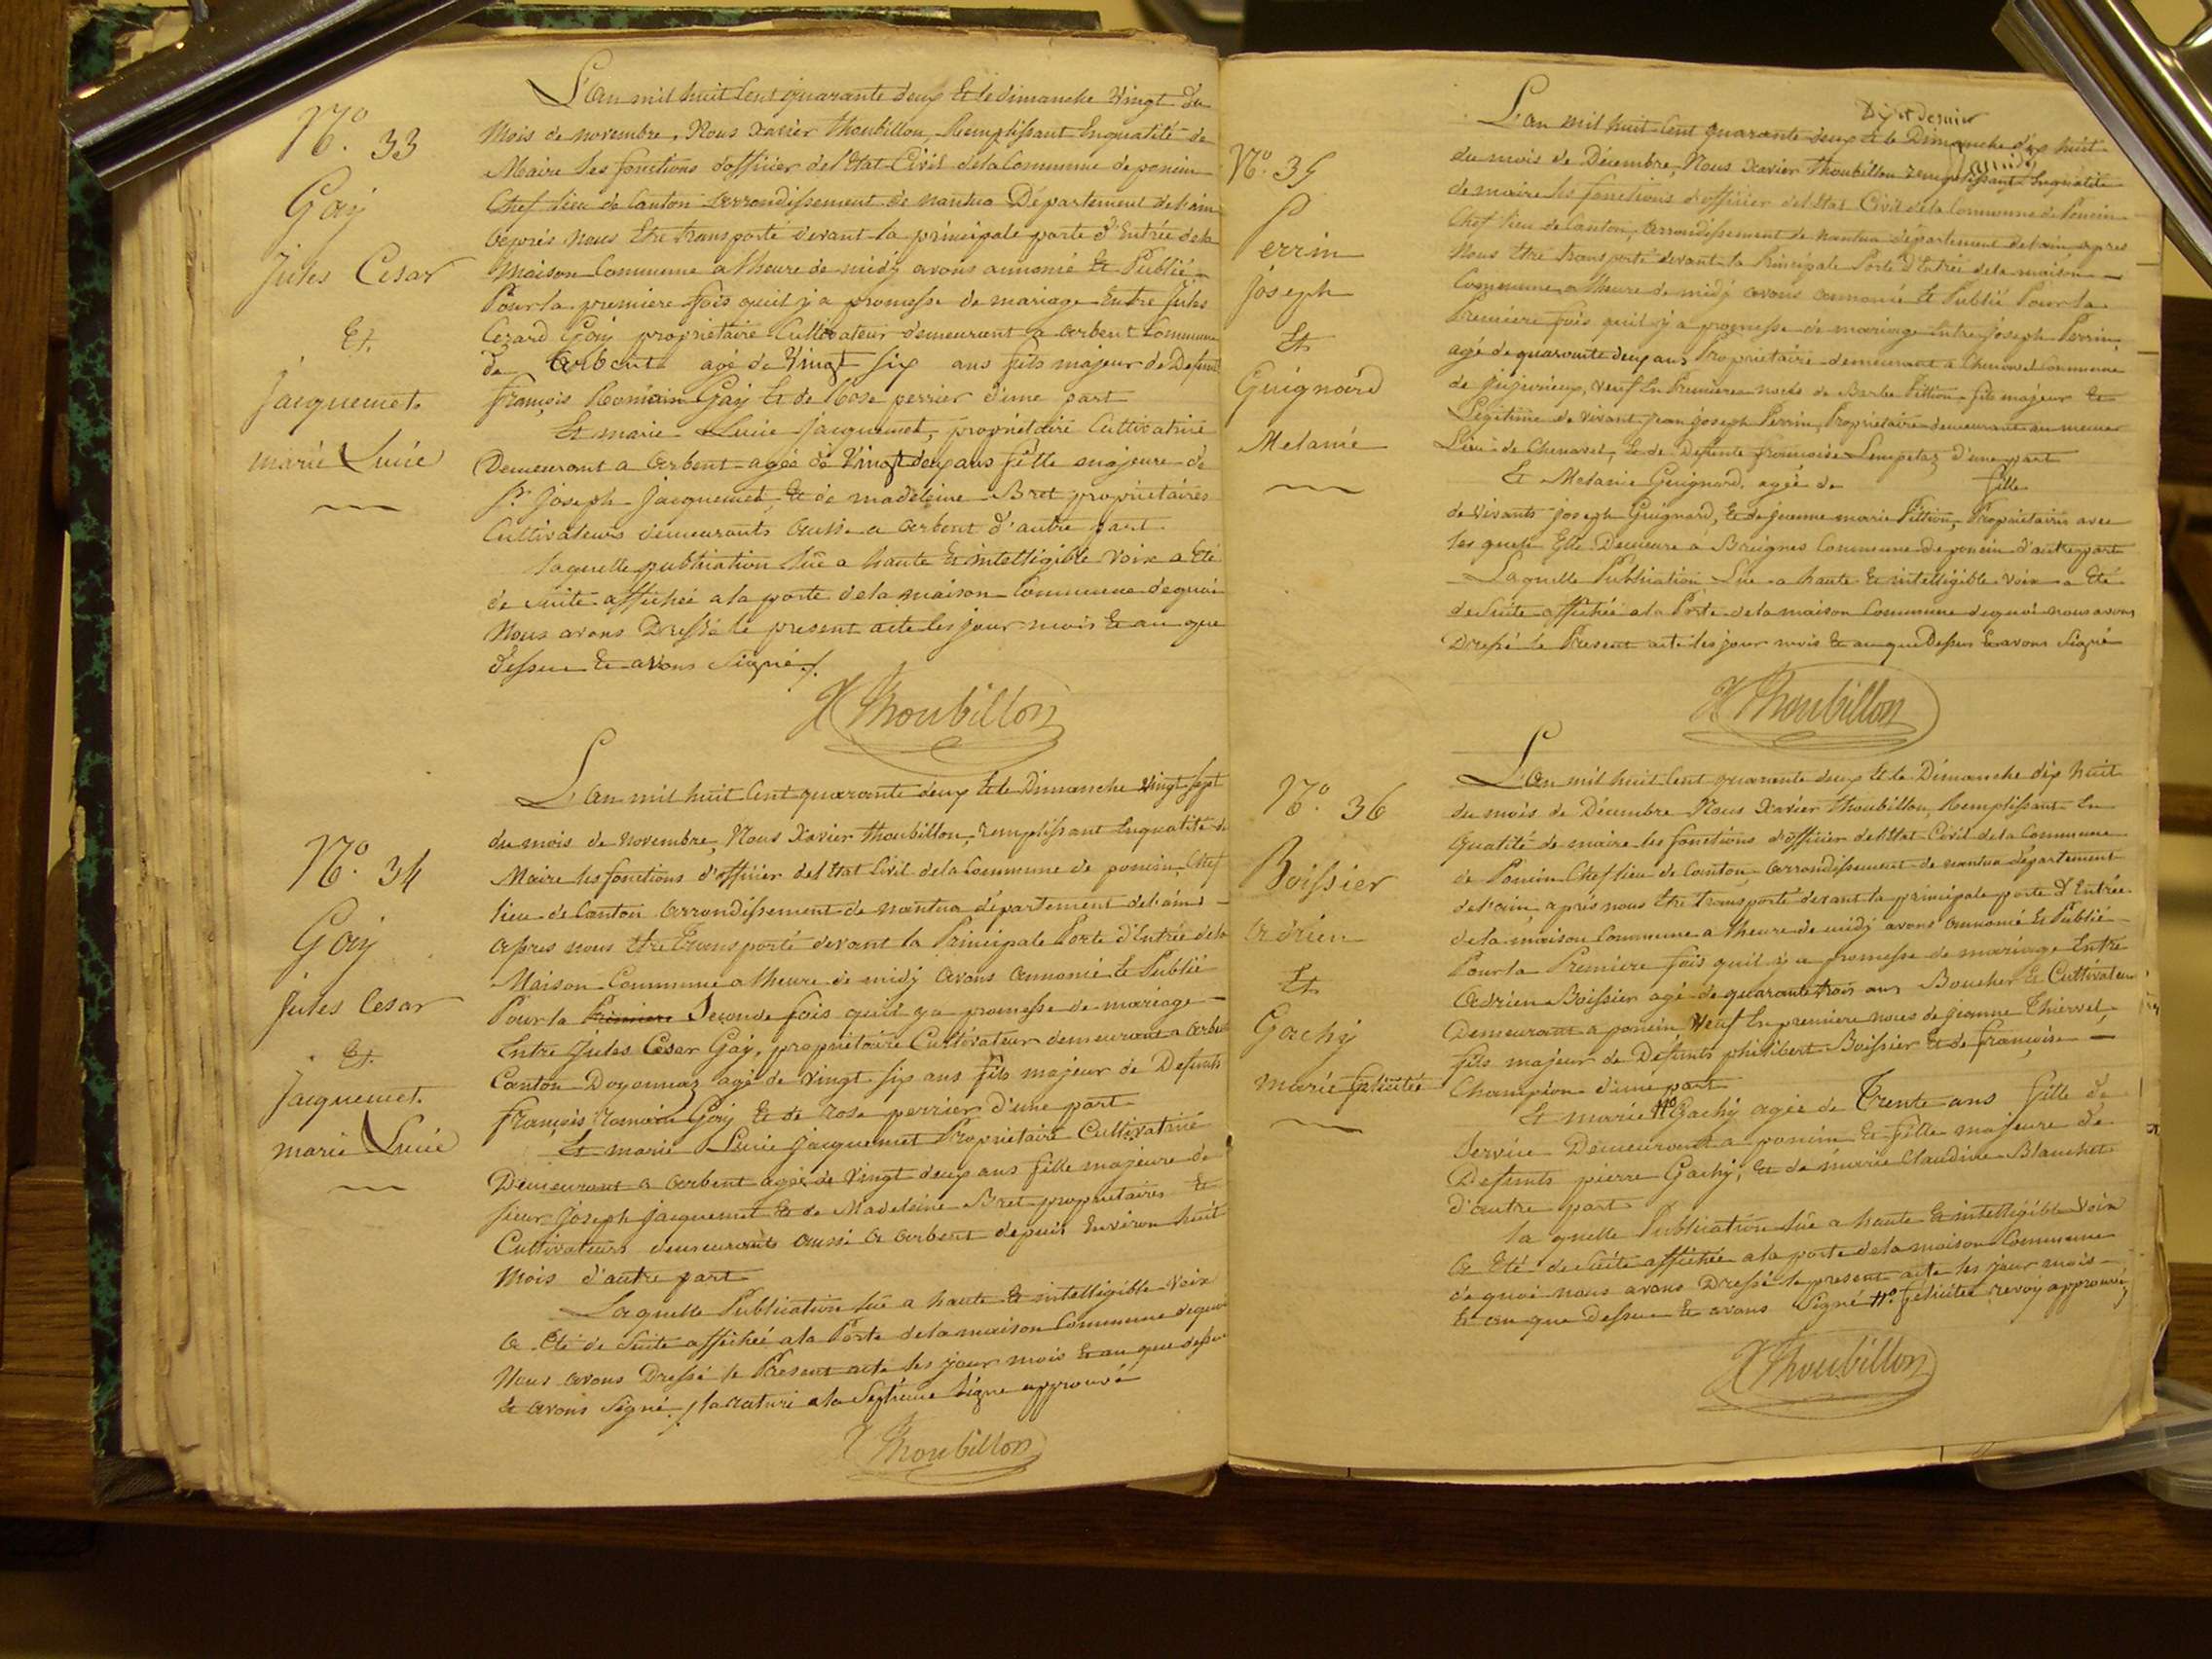 N.º 33
Gay
Jules Cesar
Et.
Jacquemet
marie Lucie
L'an mil huit Cent quarante deux Et le Dimanche Vingt du
Mois de novembre, Nous Xavier Thoubillon, Remplissant Enqualité de
Maire les fonctions d'officier del'Etat Civil dela Commune de poncin
Chef lieu de Canton Arrondissement de nantua Département del'ain
Après Nous Etre transporté devant la principale porte d'Entrée dela
Maison Commune a l'heure de midy avons annoncé Et Publié
Pour la premiere fois quil y a promesse de mariage Entre Jules
Cezard Gay propriétaire Cultivateur demeurant a Arbent Commune
de Arbent agé de Vingt Six ans fils majeur de Defunts
françois Romain Gay Et de Rose perrier d'une part
Et marie Lucie Jacquemet, propriétaire Cultivatrice
Demeurant a Arbent agée de Vingt deux ans fille majeure de
Sr. Joseph Jacquemet, Et de madeleine Bret propriétaires
Cultivateurs demeurants aussi a Arbent d'autre part.
laquelle publication lüe a haute Et intelligible Voix a Eté
de suite affichée a la porte dela maison Commune dequoi
Nous avons Dressé le present acte les jour mois Et an que
dessus Et avons Signé /.
X Thoubillon
N.º 34
Gay
Jules Cesar
Et.
Jacquemet.
marie Lucie
L'an mil huit Cent quarante deux Et le Dimanche Vingt Sept
du mois de novembre, Nous Xavier Thoubillon, remplissant Enqualité de
Maire les fonctions d'officier del'Etat Civil dela Commune de poncin, Chef
lieu de Canton Arrondissement de nantua département del'ain
Apres nous Etre Transporté devant la Principale Porte d'Entrée dela
Maison Commune a l'heure de midy Avons Annoncé Et Publié
Pour la Premiere Seconde fois quil y a promesse de mariage
Entre Jules Cesar Gay, propriétaire Cultivateur demeurant a Arbent
Canton Doyonnaz agé de Vingt six ans fils majeur de Defunts
françois romain Gay Et de rose perrier d'une part
Et marie Lucie Jacquemet Propriétaire Cultivatrice
Demeurant a Arbent agée de Vingt deux ans fille majeure de
sieur Joseph Jacquemet Et de Madeleine Bret propriétaires Et
Cultivateurs demeurants aussi a Arbent depuis Environ huit
Mois d'autre part
Laquelle Publication lüe a haute Et intelligible Voix
a Eté de suite affichée a la Porte dela maison Commune dequoi
Nous avons Dressé le Present acte les jour mois Et an que dessus
Et avons Signé / la rature a la Septieme ligne approuvé
X Thoubillon
N.º 35
Perrin
Joseph
Et
Guignard
Melanie
L'an mil huit Cent quarante deux Et le Dimanche dix huit
du mois de Décembre, Nous Xavier Thoubillon remplissant Enqualité
de maire les fonctions d'officier del'Etat Civil dela Commune de Poncin
Chef lieu de Canton, Arrondissement de nantua département del'ain apres
Nous Etre transporté devant la Principale Porte d'Entrée dela maison
Commune a l'heure de midy avons annoncé Et Publié Pour la
Premiere fois quil y a promesse de mariage Entre Joseph Perrin,
agé de quarante deux ans Propriétaire demeurant a Chenavel Commune
de Jujurieux, Veuf En Premieres noces de Barbe Pittion fils majeur Et
Légitime de vivant Jean Joseph Perrin, Propriétaire demeurant au meme
Lieu de Chenavel, Et de Defunte françoise Lempetaz d'une part
Et Melanie Guignard, agée de fille
de Vivants Joseph Guignard, Et de Jeanne marie Pittion, Propriétaires avec
les quels Elle Demeure a Breignes Commune de poncin d'autre part
Laquelle Publication Lüe a haute Et intelligible voix a Eté
de Suite affichée a la Porte dela maison Commune dequoi nous avons
Dressé le Present acte les jour mois Et an que Dessus Et avons Signé
X Thoubillon
N.º 36
Boissier
Adrien
Et
Gachy
Marie félicitée
L'an mil huit Cent quarante deux Et le Dimanche dix huit
du mois de Décembre Nous Xavier Thoubillon, Remplissant En
Qualité de maire les fonctions d'officier del'Etat Civil dela Commune
de Poncin Chef lieu de Canton Arrondissement de nantua département
del'ain, après nous Etre transporté devant la principale porte d'Entrée
dela maison Commune a l'heure de midy avons annoncé Et Publié
Pour la Premiere fois quil y a promesse de mariage Entre
Adrien Boissier agé de quarante trois ans Boucher Et Cultivateur
Demeurant a poncin Veuf En premiere noces de Jeanne Thiervet,
fils majeur de Defunts philibert Boissier Et de françoise
Champion d'une part
Et marie Gachy agée de Trente ans fille de
Service Demeurant a poncin Et fille majeure de
Defunts pierre Gachy, Et de marie Claudine Blanchet
d'autre part
la quelle Publication lüe a haute Et intelligible Voix
a Eté de suite affichée a la porte dela maison Commune
de quoi nous avons Dressé le present acte les jour mois
Et an que Dessus Et avons Signé félicitée renvoy approuvé
X Thoubillon